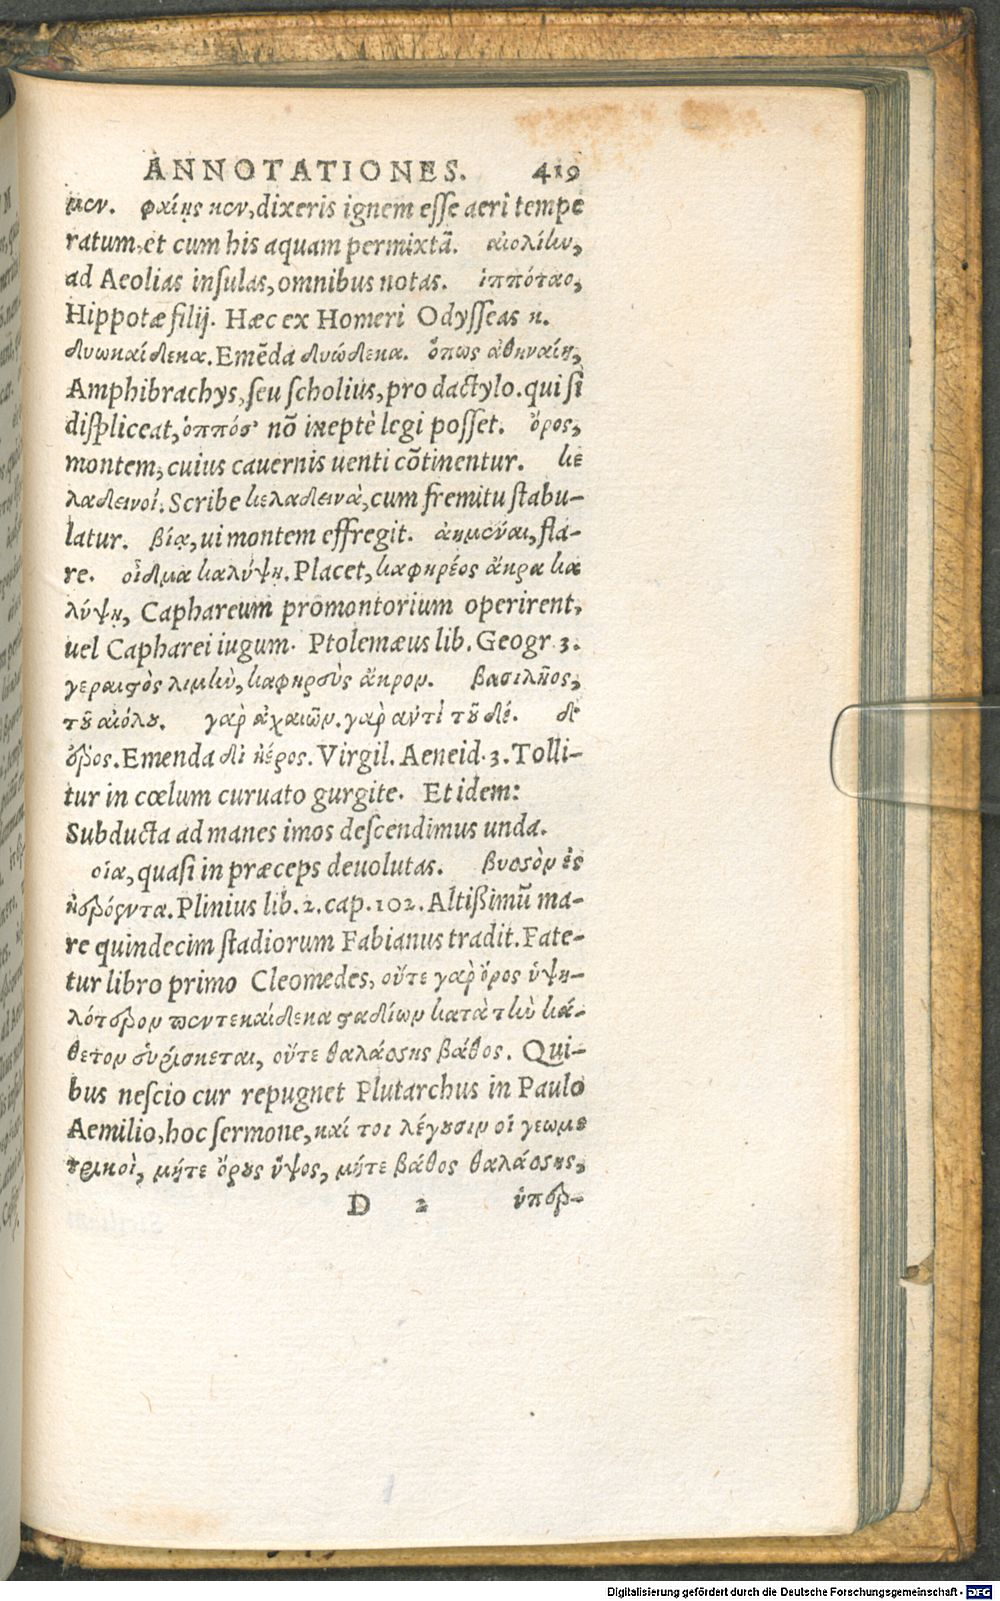 ANNOTATIONES. 419
μεν. φαίης κεν, dixeris ignem esse aeri tempe
ratum, et cum his aquam permixtã. αἰολίην,
ad Aeolias insulas, omnibus notas. ἱππόταο,
Hippotæ filij. Hæc ex Homeri Odysseas κ.
δυωκαίδεκα. Emẽda δυώδεκα. ὅπως ἀθηναίη,
Amphibrachys, seu scholius, pro dactylo. qui si
displiceat, ὁππόσ’ nõ ineptè legi posset. ὄρος,
montem, cuius cauernis uenti cõtinentur. κε
λαδεινοί. Scribe κελαδεινὰ, cum fremitu stabu-
latur. βίᾳ, ui montem effregit. ἀήμεναι, fla-
re. οἶδμα καλύψῃ. Placet, καφηρέος ἄκρα κα
λύψῃ, Caphareum promontorium operirent,
uel Capharei iugum. Ptolemæus lib. Geogr. 3.
γεραιστὸς λιμὴν, καφηρεὺς ἄκρον. βασιλῆος,
τοῦ αἰόλου. γὰρ ἀχαιῶν. γὰρ αὐτὶ τοῦ δέ. δὲ
Emenda δὶ ἠέρος. Virgil. Aeneid. 3. Tolli-
tur in cœlum curuato gurgite. Et idem:
Subducta ad manes imos descendimus unda.
οἷα, quasi in præceps deuolutas. βυσσὸν ἐς
Plinius lib. 2. cap. 102. Altißimũ ma-
re quindecim stadiorum Fabianus tradit. Fate-
tur libro primo Cleomedes, οὔτε γὰρ ὄρος ὑψη-
λότερον πεντεκαίδεκα σταδίων κατὰ τὴν κά-
θετον εὑρίσκεται, οὔτε θαλάσσης βάθος. Qui-
bus nescio cur repugnet Plutarchus in Paulo
Aemilio, hoc sermone, καί τοι λέγουσιν οἱ γεωμε
τρικοὶ, μήτε ὄρους ὕψος, μήτε βάθος θαλάσσης,
D 2 ὑπερ-
Digitalisierung gefördert durch die Deutsche Forschungsgemeinschaft - DFG